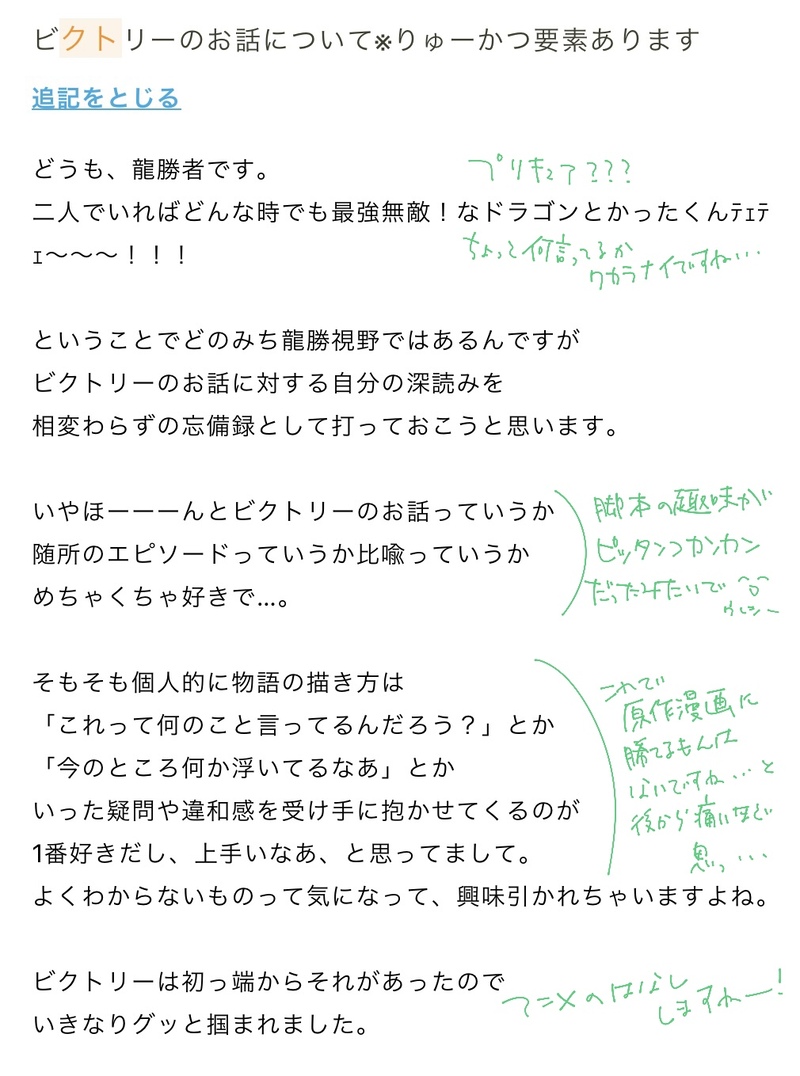 ビクトリーのお話について※りゅーかつ要素あります
追記をとじる
どうも、龍勝者です。
プリキュア???
二人でいればどんな時でも最強無敵！なドラゴンとかったくんﾃｪﾃ
ｪ〜〜〜！！！
ちょっと何言ってるか
ワカラナイですね…
ということでどのみち龍勝視野ではあるんですが
ビクトリーのお話に対する自分の深読みを
相変わらずの忘備録として打っておこうと思います。
いやほーーーんとビクトリーのお話っていうか
随所のエピソードっていうか比喩っていうか
めちゃくちゃ好きで…。
脚本の趣味が
ピッタンコカンカン
だったみたいで
そもそも個人的に物語の描き方は
「これって何のこと言ってるんだろう？」とか
「今のところ何か浮いてるなあ」とか
いった疑問や違和感を受け手に抱かせてくるのが
1番好きだし、上手いなあ、と思ってまして。
よくわからないものって気になって、興味引かれちゃいますよね。
これで
原作漫画に
勝てるもんは
ないですね…と
後から痛いほど
思っ…
ビクトリーは初っ端からそれがあったので
いきなりグッと掴まれました。
アニメのはなし
しますねー!